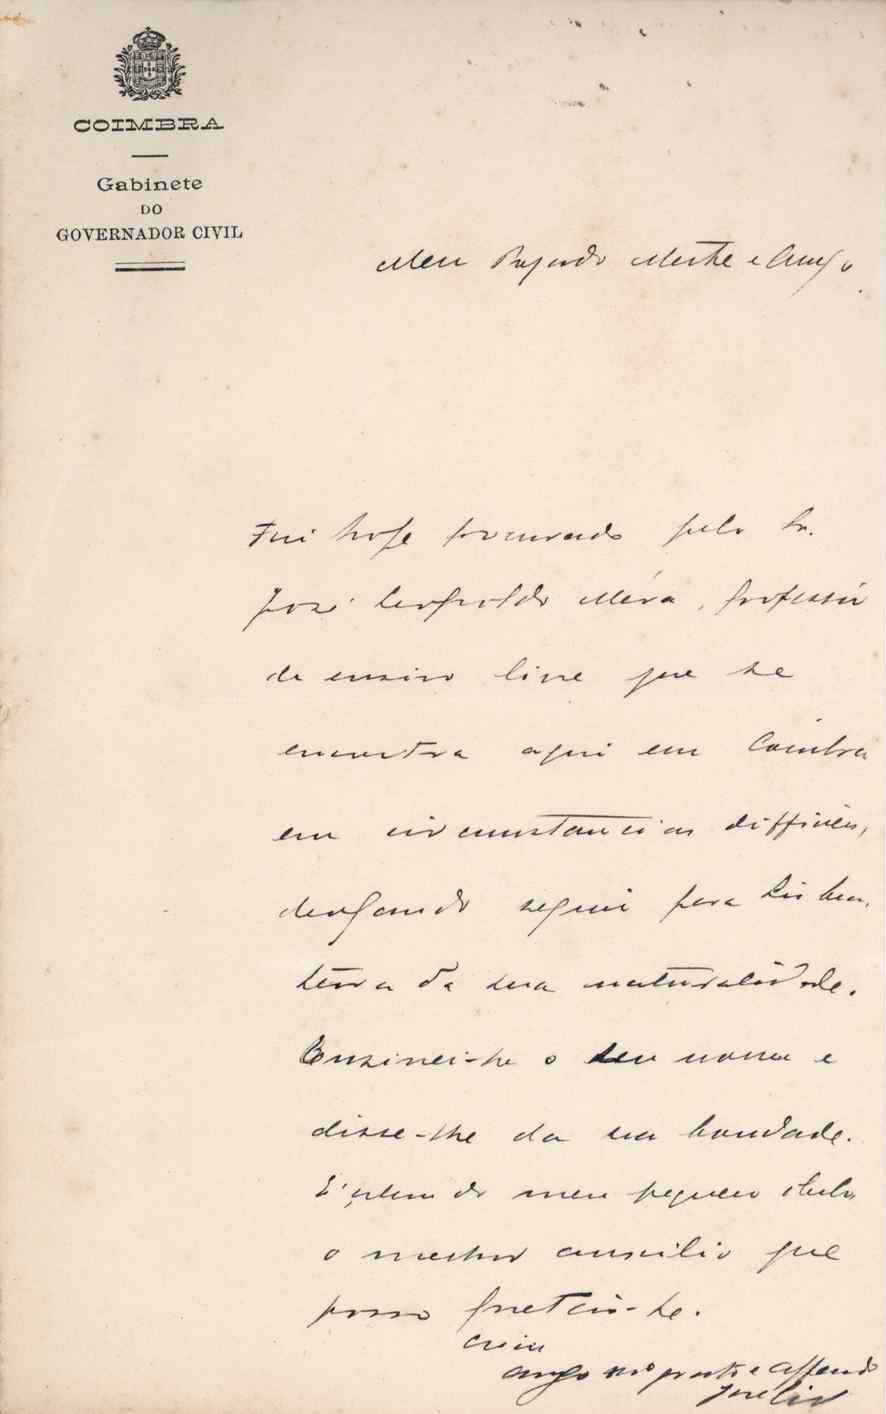 COIMBRA
Gabinete
DO
GOVERNADOR CIVIL
Meu Prezado Mestre e Amigo
Fui hoje procurado pelo Sr.
José Leopoldo Méra, professor
de ensino livre que se
encontra aqui em Coimbra
em circumstancias difficeis,
desejando seguir para Lisboa,
terra da sua naturalidade.
Ensinei-lhe o seu nome e
disse-lhe da sua bondade.
E' alem do meu pequeno obulo
o melhor auxilio que
posso prestar-lhe.
Creia
amgo mto grato e affando